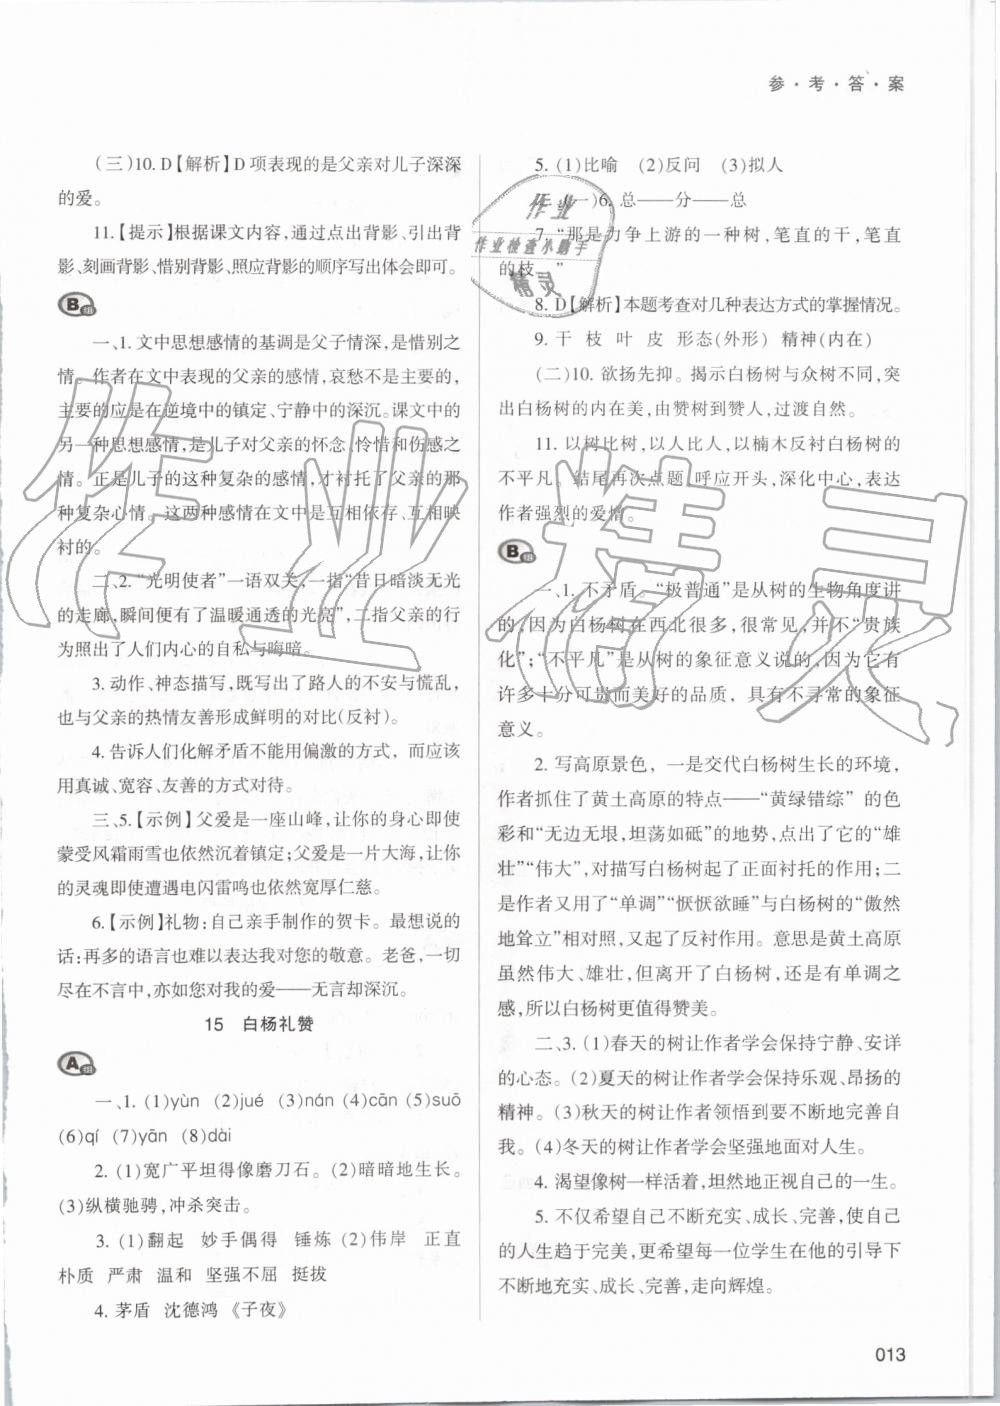 参·考·答·案
(三)10. D【解析】D 项表现的是父亲对儿子深深
的爱。
11.【提示】根据课文内容,通过点出背影、引出背
影、刻画背影、惜别背影、照应背影的顺序写出体会即可。
B组
一、1. 文中思想感情的基调是父子情深,是伤别之
情。作者在文中表现的父亲的感情,哀愁不是主要的,
主要的应是在逆境中的镇定、宁静中的深沉。课文中的
另一种思想感情,是儿子对父亲的怀念、怜惜和伤感之
情。正是儿子的这种复杂的感情,才衬托了父亲的那
种复杂心情。这两种感情在文中是互相依存、互相映
衬的。
二、2. “光明使者”一语双关,一指“昔日暗淡无光
的走廊,瞬间便有了温暖通透的光亮”,二指父亲的行
为照出了人们内心的自私与晦暗。
3. 动作、神态描写,既写出了路人的不安与慌乱,
也与父亲的热情友善形成鲜明的对比(反衬)。
4. 告诉人们化解矛盾不能用偏激的方式,而应该
用真诚、宽容、友善的方式对待。
三、5.【示例】父爱是一座山峰,让你的身心即使
蒙受风霜雨雪也依然沉着镇定;父爱是一片大海,让你
的灵魂即使遭遇电闪雷鸣也依然宽厚仁慈。
6.【示例】礼物:自己亲手制作的贺卡。最想说的
话:再多的语言也难以表达我对您的敬意。老爸,一切
尽在不言中,亦如您对我的爱——无言却深沉。
15 白杨礼赞
A组
一、1. (1)yùn (2)jué (3)nán (4)cān (5)suō
(6)qí (7)yān (8)dài
2. (1)宽广平坦得像磨刀石。(2)暗暗地生长。
(3)纵横驰骋,冲杀突击。
3. (1)翻起 妙手偶得 锤炼 (2)伟岸 正直
朴质 严肃 温和 坚强不屈 挺拔
4. 茅盾 沈德鸿 《子夜》
5. (1)比喻 (2)反问 (3)拟人
二、(一)6. 总——分——总
7. “那是力争上游的一种树,笔直的干,笔直
的枝。”
8. D【解析】本题考查对几种表达方式的掌握情况。
9. 干 枝 叶 皮 形态(外形) 精神(内在)
(二)10. 欲扬先抑。揭示白杨树与众树不同,突
出白杨树的内在美,由赞树到赞人,过渡自然。
11. 以树比树,以人比人,以楠木反衬白杨树的
不平凡。结尾再次点题,呼应开头,深化中心,表达
作者强烈的爱憎。
B组
一、1. 不矛盾。“极普通”是从树的生物角度讲
的,因为白杨树在西北很多,很常见,并不“贵族
化”;“不平凡”是从树的象征意义说的,因为它有
许多十分可贵而美好的品质,具有不寻常的象征
意义。
2. 写高原景色,一是交代白杨树生长的环境,
作者抓住了黄土高原的特点——“黄绿错综”的色
彩和“无边无垠,坦荡如砥”的地势,点出了它的“雄
壮”“伟大”,对描写白杨树起了正面衬托的作用;二
是作者又用了“单调”“恹恹欲睡”与白杨树的“傲然
地耸立”相对照,又起了反衬作用。意思是黄土高原
虽然伟大、雄壮,但离开了白杨树,还是有单调之
感,所以白杨树更值得赞美。
二、3. (1)春天的树让作者学会保持宁静、安详
的心态。(2)夏天的树让作者学会保持乐观、昂扬的
精神。(3)秋天的树让作者领悟到要不断地完善自
我。(4)冬天的树让作者学会坚强地面对人生。
4. 渴望像树一样活着,坦然地正视自己的一生。
5. 不仅希望自己不断充实、成长、完善,使自己
的人生趋于完美,更希望每一位学生在他的引导下
不断地充实、成长、完善,走向辉煌。
作业
作业检查小助手
精灵
作业精灵
013